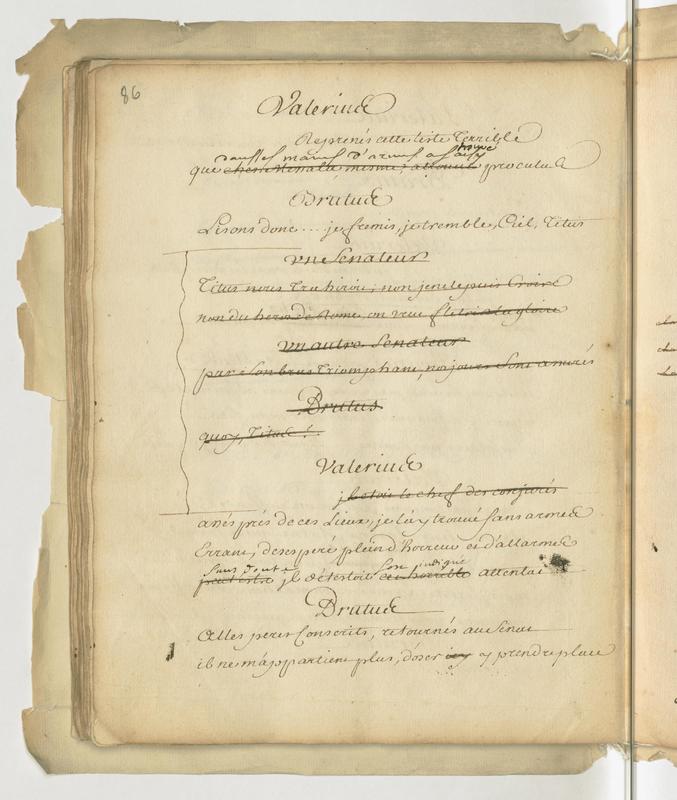 86
Valerius
Reprenés cette liste Terrible
dans les mains d'aruns a saisy trouvé
que chez Messalla mesme, allant proculus
Brutus
Lisons donc... je fremis, je tremble, Ciel, Titus
un Senateur
Titus nous Trahiroit, non je ne le puis Croire
non du heros de Rome, on veut fletrir la gloire
un autre Senateur
par son bras Triomphant, nos jours sont assurés
Brutus
quoy, Titus!
Valerius
il etoit le chef des conjurés
assés prés de ces Lieux, je l'ay trouvé sans armes
Errant, desesperé plein d'Horreur et d'allarmes
Sans doute son indigne
peut estre il détestoit cet horrible attentat
Brutus
Allés peres Conscrits, retournés au Senat
il ne m'appartient plus, d'oser icy y prendre place